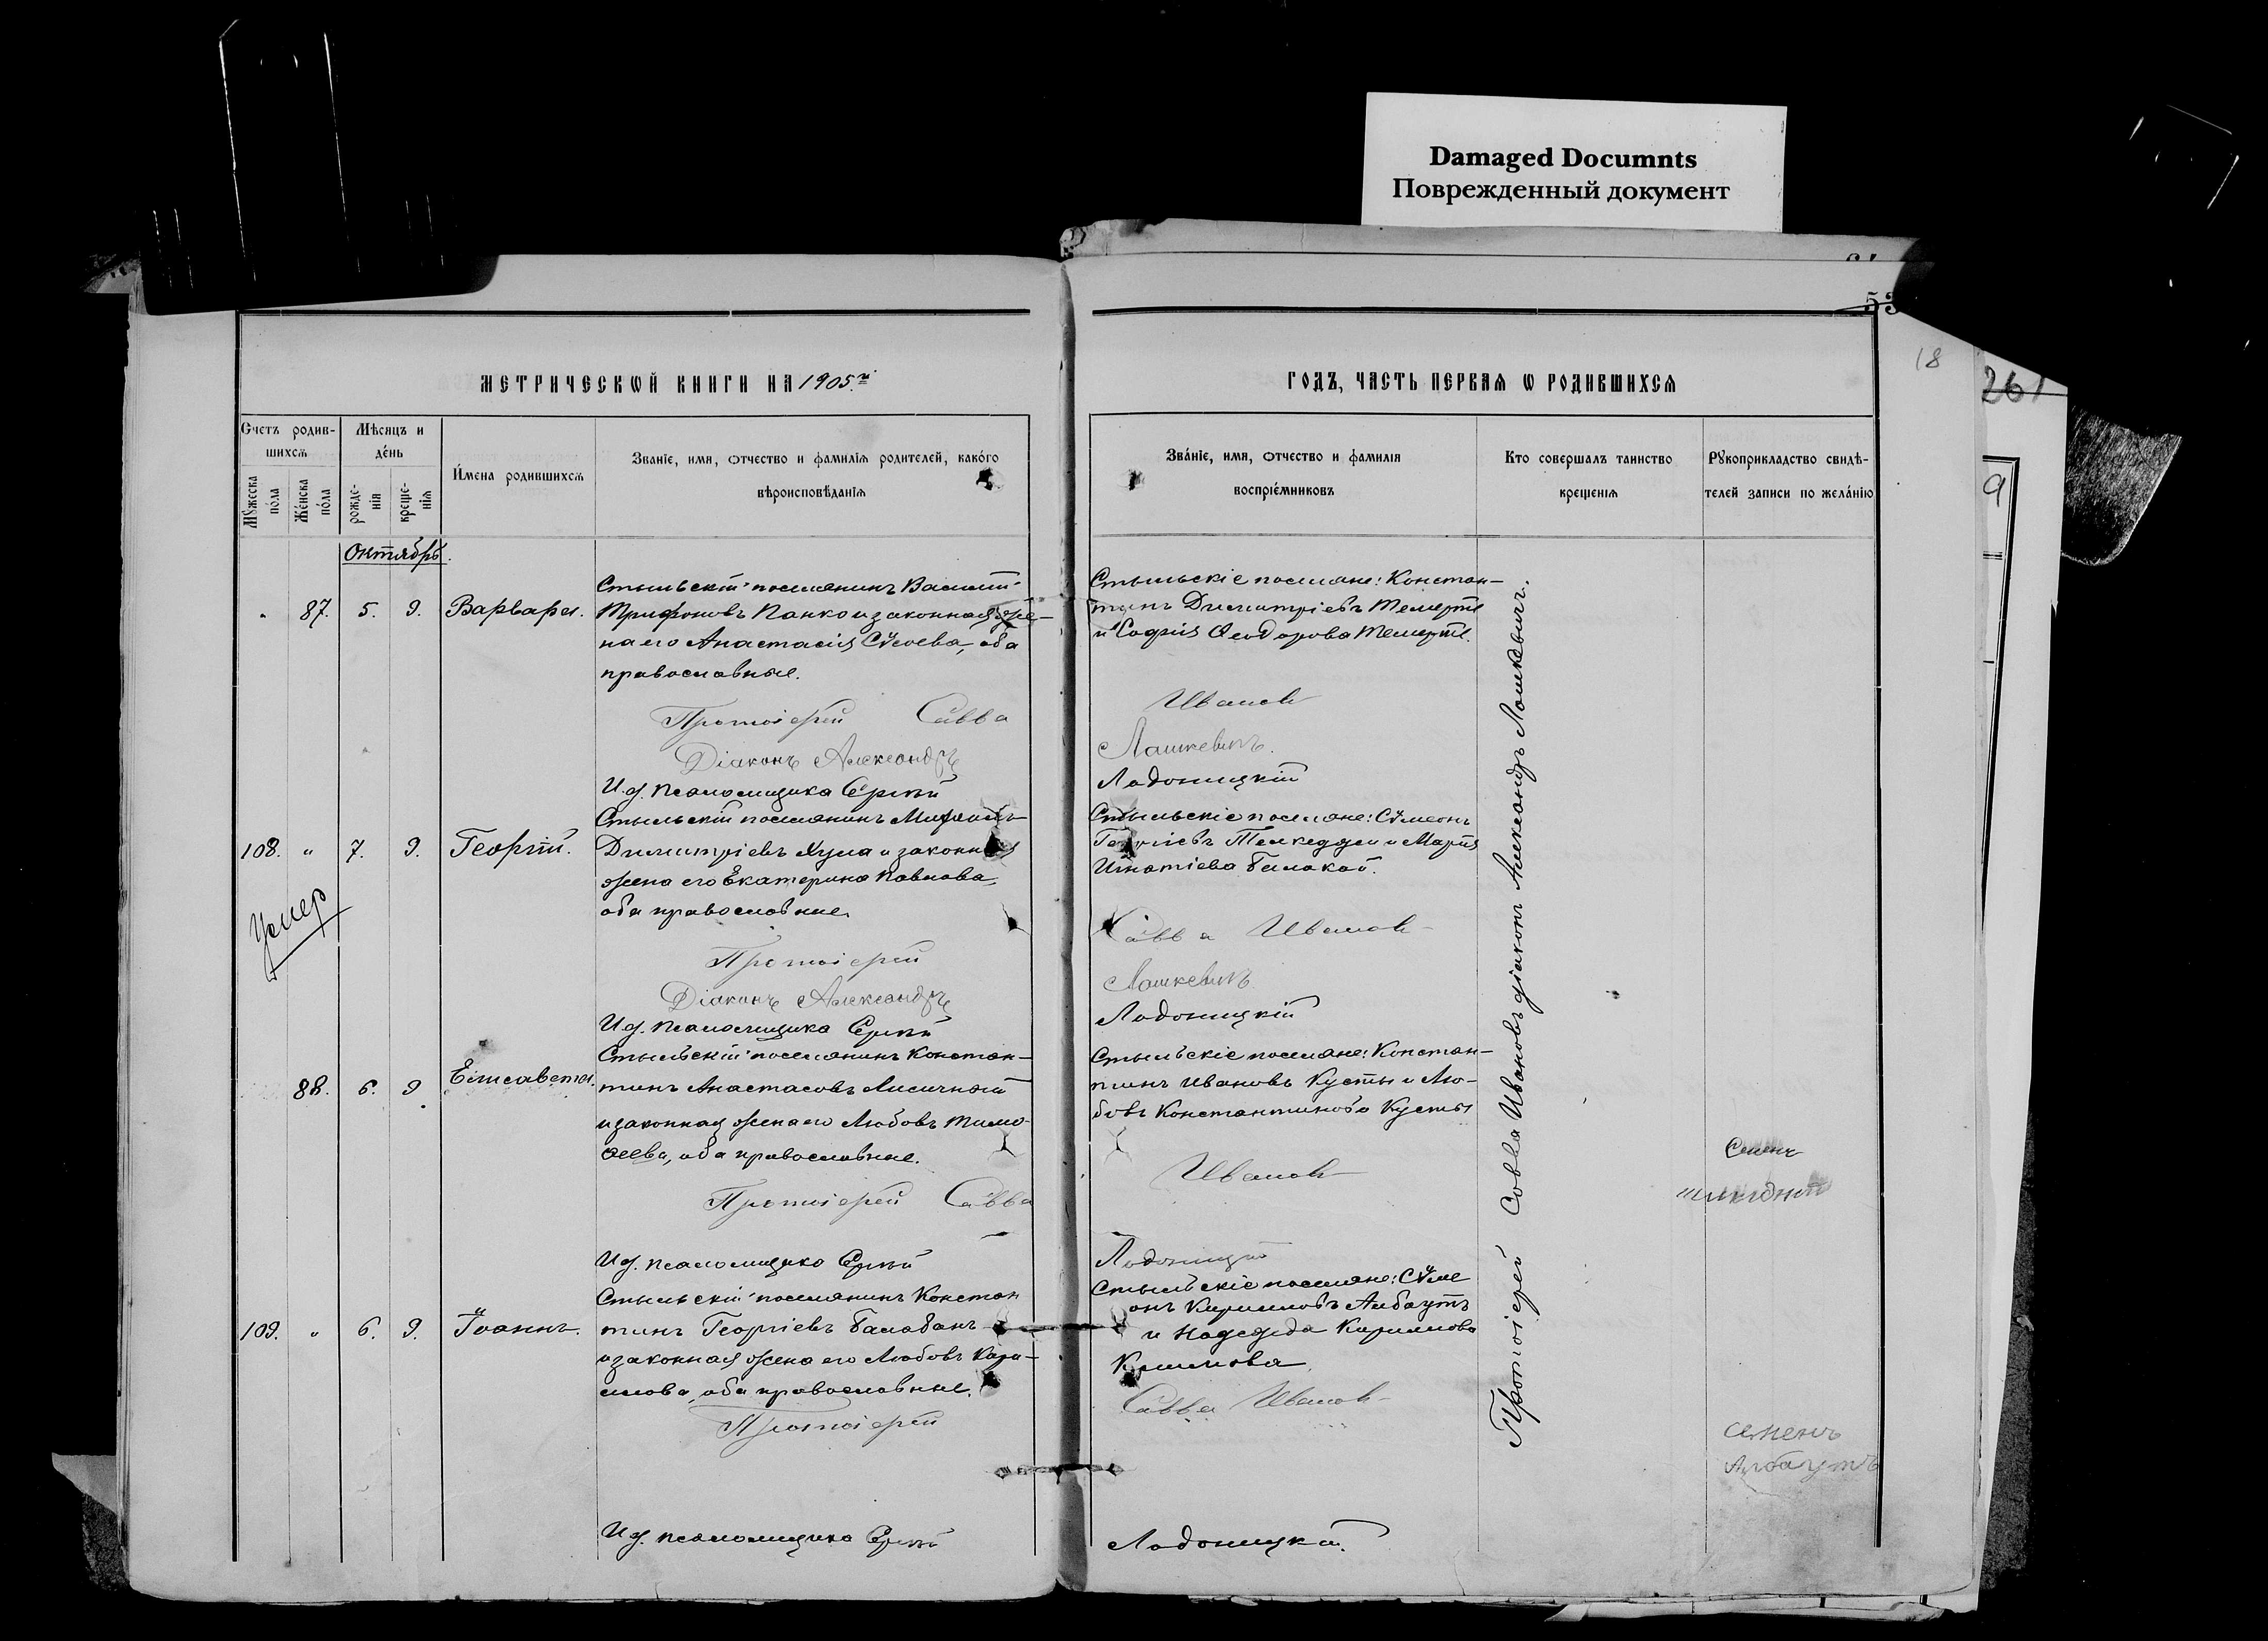 Damaged Documnts
Поврежденный документ
53
18
261
9
МЕТРИЧЕСКѠЙ КНИГИ НА 1905й
ГОДЪ, ЧАСТЬ ПЕРВАЯ Ѡ РОДИВШИХСѦ
Счетъ родив-
шихсѧ
Мꙋжеска
по́ла
Же́нска
по́ла
Мѣсяцъ и
де́нь
рожде-
нія
креще-
нія
И́мена родившихсѧ
Званіе, имя, ѻтчество и фамиліѧ родителей, како́го
вѣроисповѣданіѧ
Зва́ніе, имя, ѻтчество и фамилія
воспріе́мниковъ
Кто совершалъ таинство
крещеніѧ
Рꙋкоприкладство свидѣ-
телей записи по жела́нію
Октябрь.
" 87. 5. 9. Варвара.
Стыльскій поселянинъ Василій
Трифоновъ Панко и законная же-
на его Анастасія Сѵсоева, оба
православные.
Протоіерей Савва
Діаконъ Александръ
И.д. псаломщика Сергѣй
Стыльскіе поселяне: Констан-
тинъ Димитріевъ Темертѣ
и Софія Ѳеодорова Темертѣ.
Иванов
Лашкевичъ.
Ладоницкій
108. " 7. 9. Георгій.
Умер
Стыльскій поселянинъ Михаилъ
Димитріевъ Хума и законная
жена его Екатерина Павлова,
оба православные.
Протоіерей
Діаконъ Александръ
И.д. псаломщика Сергѣй
Стыльскіе поселяне: Сѵмеонъ
Георгіевъ и Марія
Игнатіева
Савва Иванов
Лашкевичъ
Ладоницкій
88. 6. 9. Елисавета.
Стыльскій поселянинъ Констан-
тинъ Анастасовъ Лисичный
и законная жена его Любовь Тимо-
ѳеева, оба православные.
Протоіерей Савва
И.д. псаломщика Сергѣй
Стыльскіе поселяне: Констан-
тинъ Ивановъ Кусты и Лю-
бовь Константинова Кусты
Иванов
Ладоницкій
Семенъ
109. " 6. 9. Іоаннъ.
Стыльскій поселянинъ Констан
тинъ Георгіевъ Балабанъ
и законная жена его Любовь Кари-
лова, оба православные.
Протоіерей
И.д. псаломщика Сергѣй
Стыльскіе поселяне: Сѵме
онъ Кирилловъ Албаутъ
и Надежда Кириллова
Савва Иванов
Ладоницкій.
Семенъ
Албаутъ
Протоіерей Савва Ивановъ діаконъ Александръ Лашкевичъ.